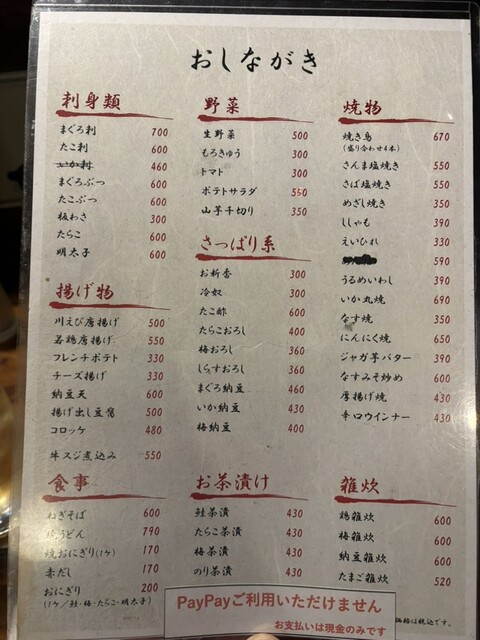 おしながき
刺身類
まぐろ刺 700
たこ刺 600
いか刺 460
まぐろぶつ 600
たこぶつ 600
板わさ 300
たらこ 600
明太子 600
揚げ物
川えび唐揚げ 500
若鶏唐揚げ 550
フレンチポテト 330
チーズ揚げ 330
納豆天 600
揚げ出し豆腐 500
コロッケ 480
牛スジ煮込み 550
食事
ねぎそば 600
うどん 790
焼おにぎり(1ケ) 170
赤だし 170
おにぎり 200
(1ケ/鮭・梅・たらこ・明太子)
野菜
生野菜 500
もろきゅう 300
トマト 300
ポテトサラダ 550
山芋千切り 350
さっぱり系
お新香 300
冷奴 300
たこ酢 600
たらこおろし 400
梅おろし 360
しらすおろし 360
まぐろ納豆 460
いか納豆 430
梅納豆 400
お茶漬け
鮭茶漬 430
たらこ茶漬 430
梅茶漬 430
のり茶漬 430
焼物
焼き鳥 670
(盛り合わせ4本)
さんま塩焼き 550
さば塩焼き 550
めざし焼き 350
ししゃも 390
えいひれ 330
590
うるめいわし 390
いか丸焼 690
なす焼 350
にんにく焼 650
ジャガ芋バター 390
なすみそ炒め 600
厚揚げ焼 430
辛口ウインナー 430
雑炊
鶏雑炊 600
梅雑炊 600
納豆雑炊 600
たまご雑炊 520
価格は税込です。
PayPayご利用いただけません
お支払いは現金のみです